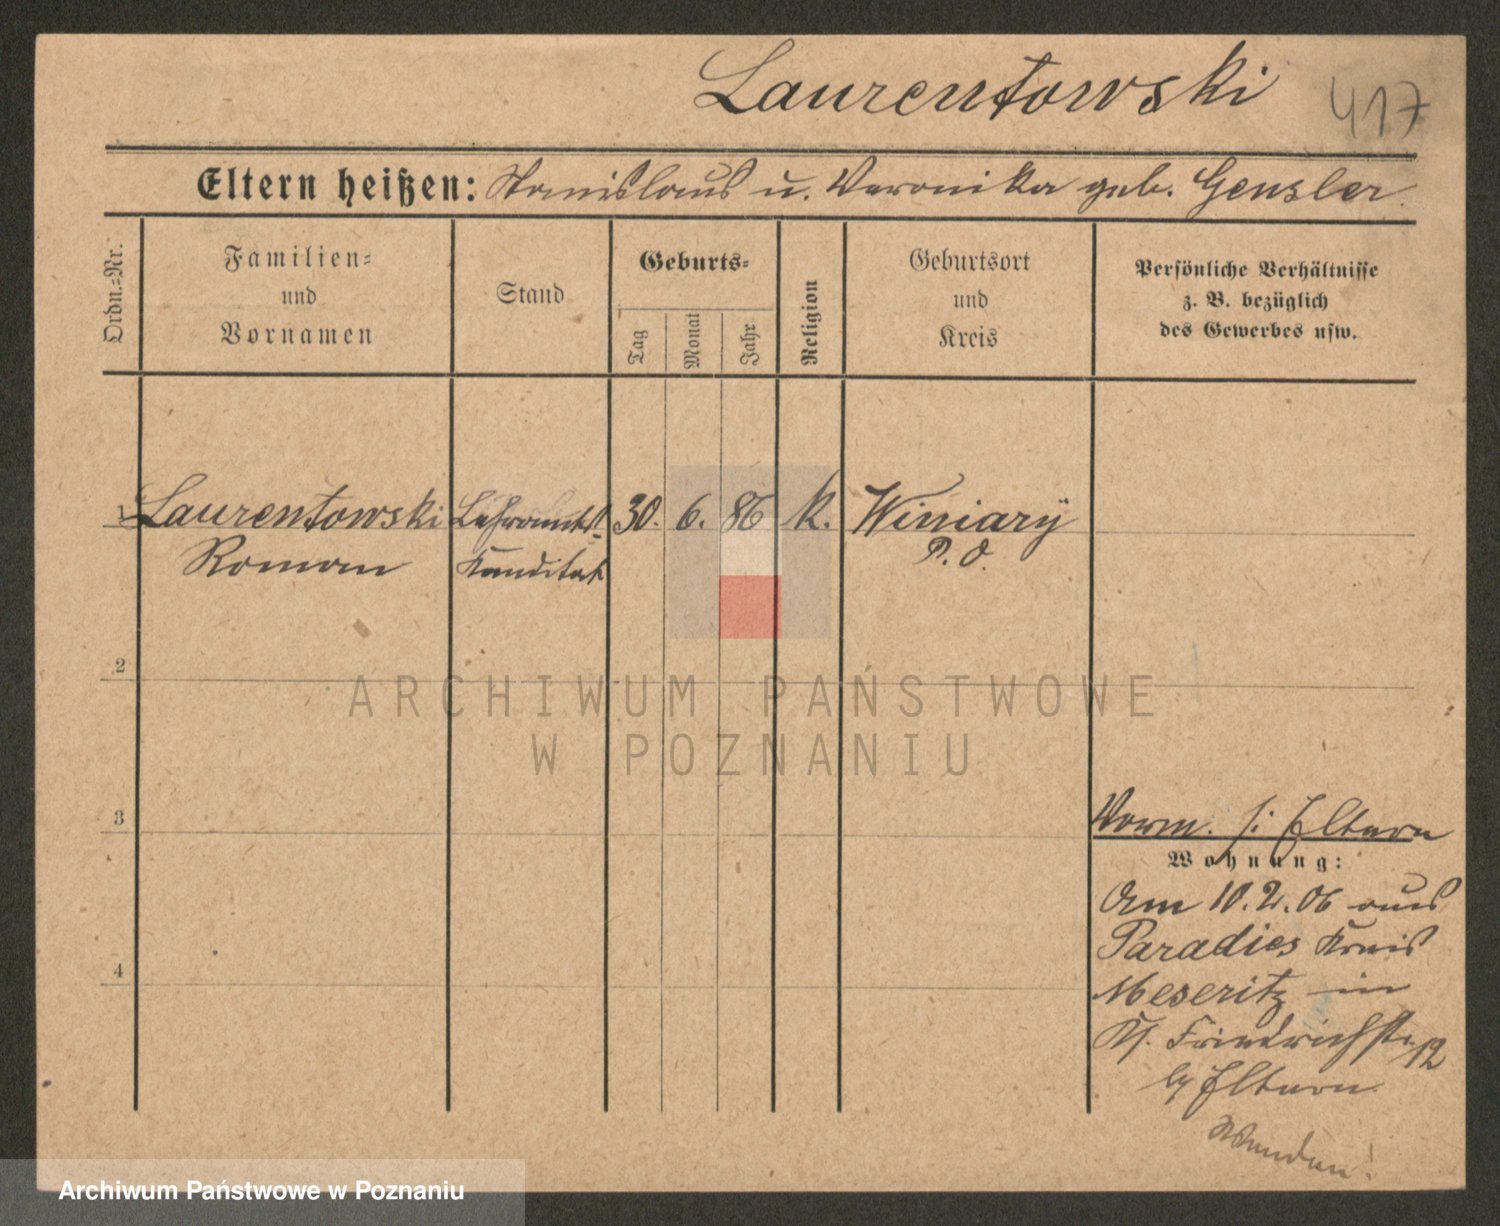 Laurentowski 417
Eltern heißen: Stanislaus u. Veronika geb. Gensler.
Ordn.=Nr.
Familien=
und
Vornamen
Stand
Geburts=
Tag
Monat
Jahr
Religion
Geburtsort
und
Kreis
Persönliche Verhältnisse
z. B. bezüglich
des Gewerbes usw.
1 Laurentowski Lehramts- 30. 6. 86 k. Winiary
Roman Kanditat P. O.
2
ARCHIWUM PAŃSTWOWE
W POZNANIU
3
Vorm. s: Eltern
Wohnung:
Am 10.2.06 aus
Paradies Kreis
4
Meseritz in
Friedrichstr 12
by Eltern.
Wenden!
Archiwum Państwowe w Poznaniu